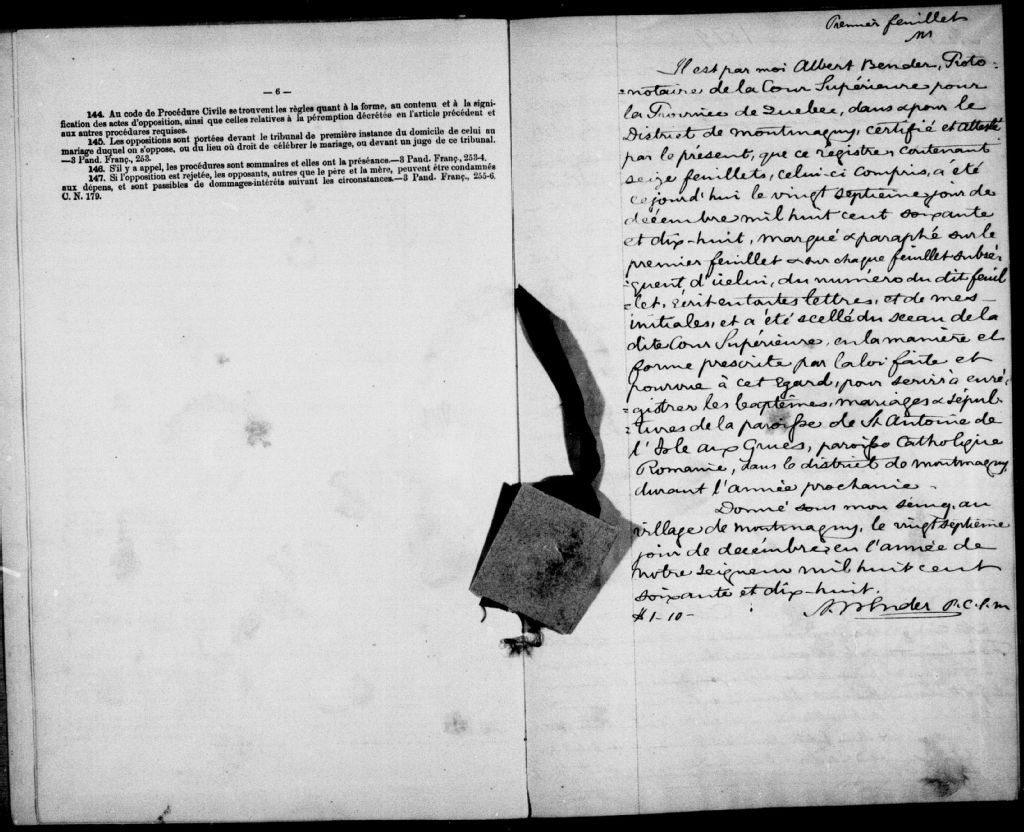 — 6 —
144. Au code de Procédure Civile se trouvent les règles quant à la forme, au contenu et à la signi-
fication des actes d'opposition, ainsi que celles relatives à la péremption décrétée en l'article précédent et
aux autres procédures requises.
145. Les oppositions sont portées devant le tribunal de première instance du domicile de celui au
mariage duquel on s'oppose, ou du lieu où droit de célébrer le mariage, ou devant un juge de ce tribunal.
—3 Pand. Franç., 253.
146. S'il y a appel, les procédures sont sommaires et elles ont la préséance.—3 Pand. Franç., 253-4.
147. Si l'opposition est rejetée, les opposants, autres que le père et la mère, peuvent être condamnés
aux dépens, et sont passibles de dommages-intérêts suivant les circonstances.—3 Pand. Franç., 255-6.
C. N. 179.
Premier feuillet
Il est par moi Albert Bender, Proto-
notaire de la Cour Supérieure pour
la Province de Quebec, dans & pour le
District de Montmagny, certifié et attesté
par le présent, que ce régistre contenant
seize feuillets, celui-ci compris, a été
ce jourd'hui le vingt septième jour de
décembre mil huit cent soixante
et dix-huit, marqué & paraphé sur le
premier feuillet & sur chaque feuillet subsé-
quent d'icelui, du numéro du dit feuil-
let, écrit en toutes lettres, et de mes
initiales, et a été scellé du sceau de la
dite Cour Supérieure, en la manière et
forme prescrite par la loi faite et
pourvue à cet égard, pour servir à enré-
gistrer les baptêmes, mariages & sépul-
tures de la paroisse de St Antoine de
l'Isle aux Grues, paroisse Catholique
Romaine, dans le district de Montmagny,
durant l'année prochaine.
Donné sous mon seing, au
village de Montmagny, le vingt septième
jour de decémbre, en l'année de
Notre Seigneur mil huit cent
soixante et dix-huit.
A. Bender P.C.S.M
$1-10-